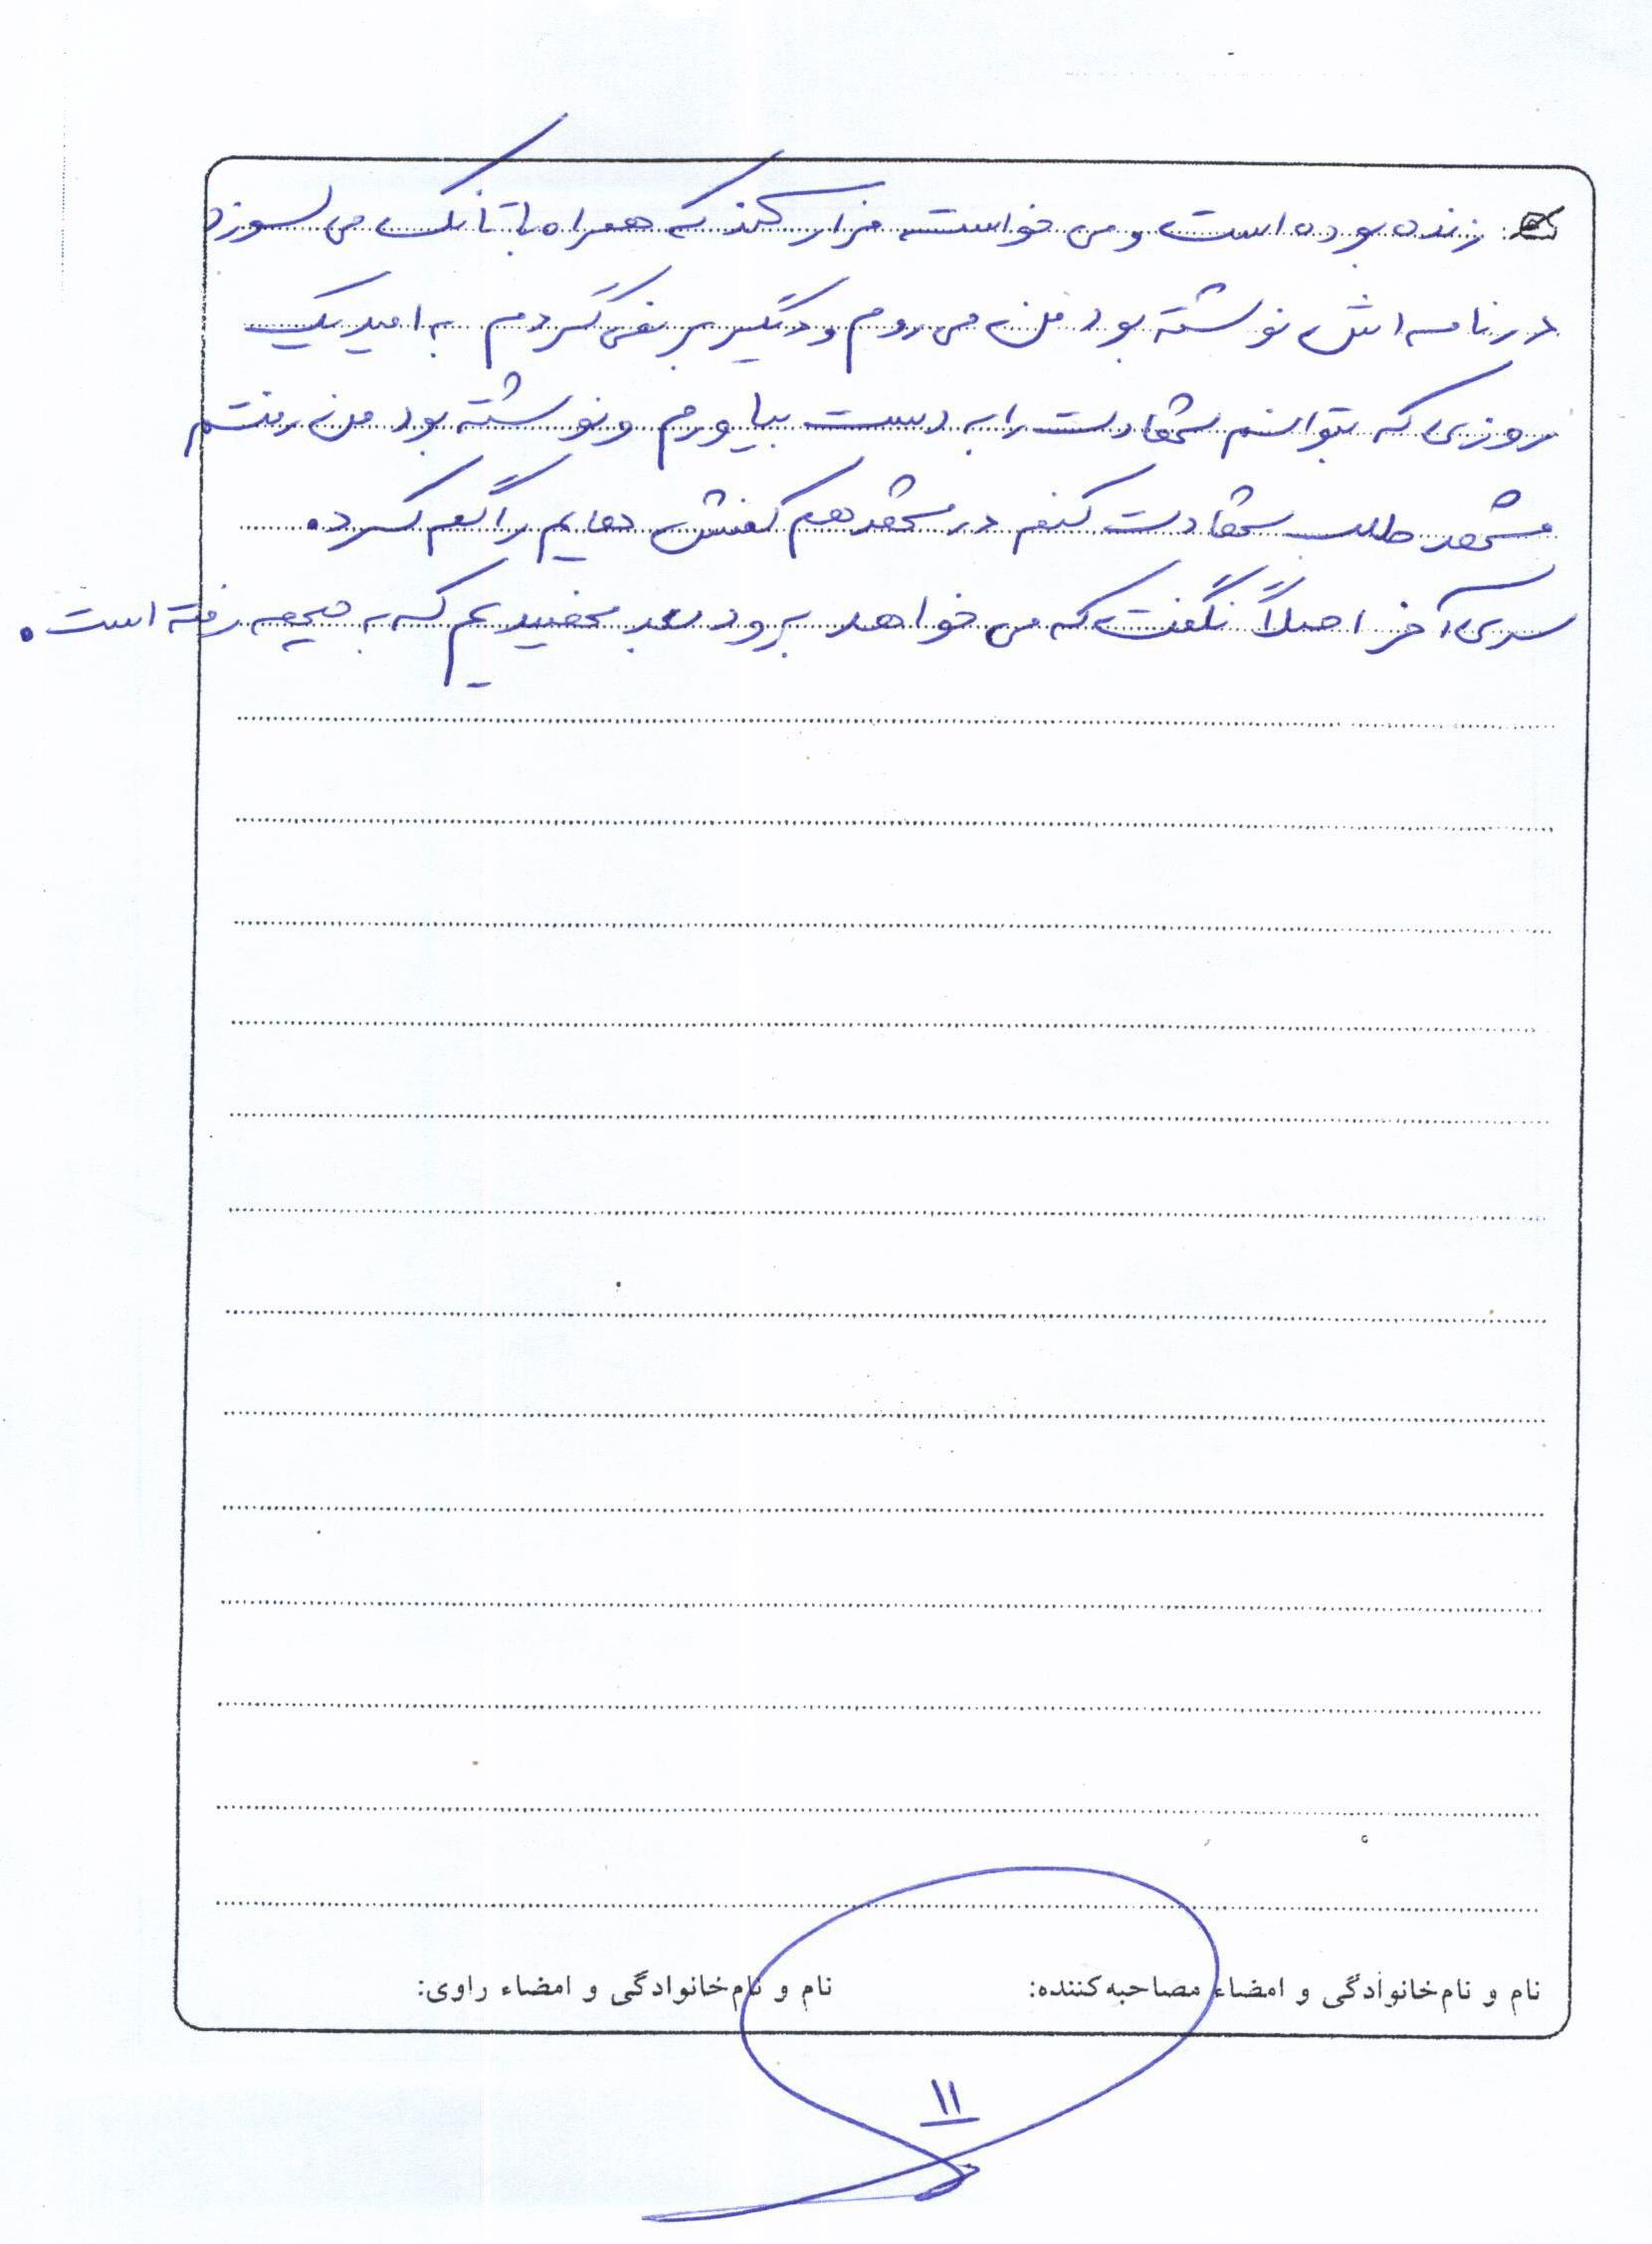 زنده بوده است و می خواسته فرار کند که همراه با تانک می سوزد
در نامه اش نوشته بود من می روم و دیگر بر نمی گردم به امید یک
روزی که بتوانم شهادت را به دست بیاورم و نوشته بود من رفتم
مشهد طلب شهادت کنم در مشهد هم کفش هایم را گم کرد.
سری آخر اصلاً نگفت که می خواهد برود بعد فهمیدیم که به جبهه رفته است.
نام و نام‌خانوادگی و امضاء مصاحبه‌کننده: نام و نام‌خانوادگی و امضاء راوی:
۱۱